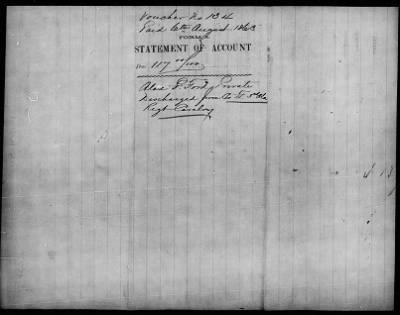 Voucher No 134
Paid 6th August 1863
FORM
STATEMENT OF ACCOUNT
For 117 00/100
Ford, Private
Discharged from Co
Regt Cavalry